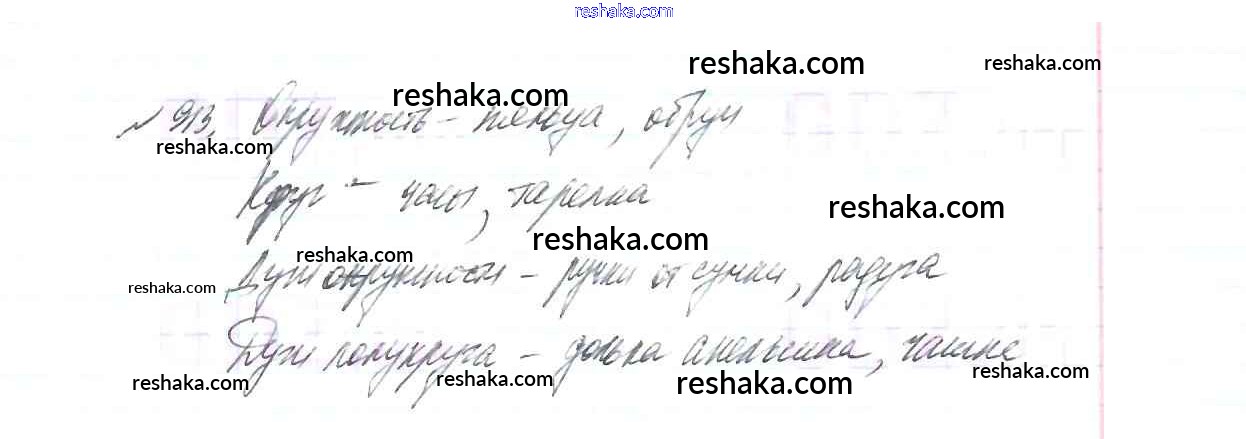 reshaka.com
reshaka.com
reshaka.com
reshaka.com
№ 913. Окружность – кольца, обруч
reshaka.com
Круг – часы, тарелка
reshaka.com
reshaka.com
reshaka.com
Дуги окружности – ручки от сумки, радуга
reshaka.com
Дуги полукруга – долька апельсина,
reshaka.com
reshaka.com
reshaka.com
reshaka.com